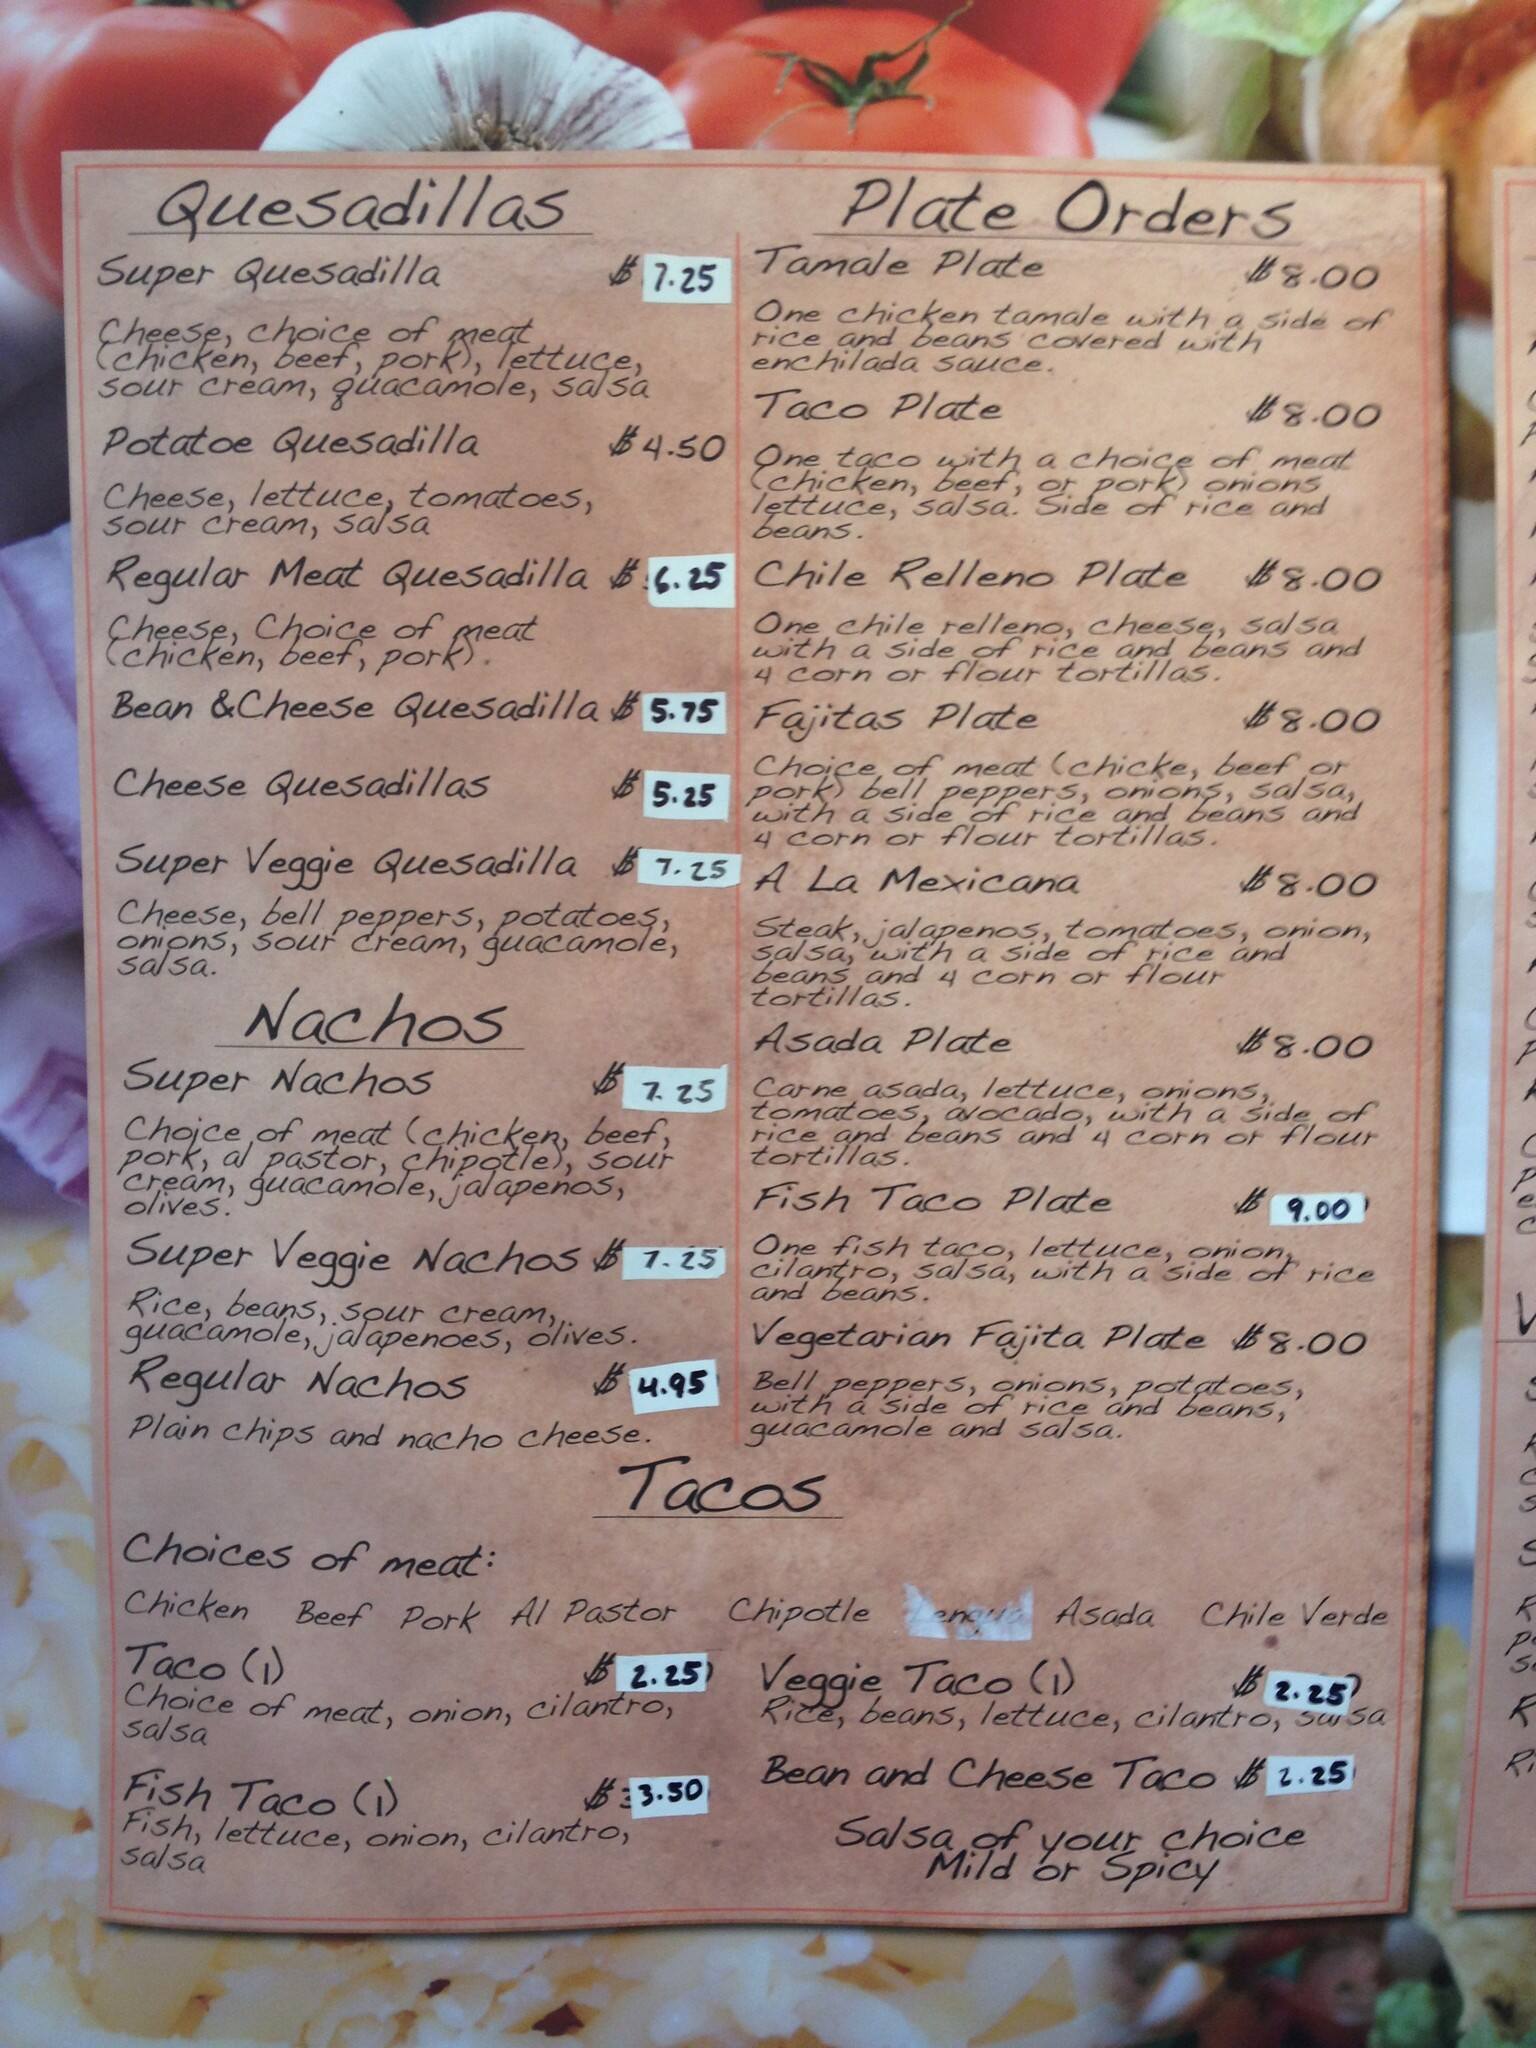 Quesadillas
Super Quesadilla $ 7.25
Cheese, choice of meat
(chicken, beef, pork), lettuce,
sour cream, guacamole, salsa
Potatoe Quesadilla $4.50
Cheese, lettuce, tomatoes,
sour cream, salsa
Regular Meat Quesadilla $ 6.25
Cheese, Choice of meat
(chicken, beef, pork).
Bean &Cheese Quesadilla $ 5.75
Cheese Quesadillas $ 5.25
Super Veggie Quesadilla $ 7.25
Cheese, bell peppers, potatoes,
onions, sour cream, guacamole,
salsa.
Nachos
Super Nachos $ 7.25
Choice of meat (chicken, beef,
pork, al pastor, chipotle), sour
cream, guacamole, jalapenos,
olives.
Super Veggie Nachos $ 7.25
Rice, beans, sour cream,
guacamole, jalapenoes, olives.
Regular Nachos $ 4.95
Plain chips and nacho cheese.
Plate Orders
Tamale Plate $8.00
One chicken tamale with a side of
rice and beans covered with
enchilada sauce.
Taco Plate $8.00
One taco with a choice of meat
(chicken, beef, or pork) onions
lettuce, salsa. Side of rice and
beans.
Chile Relleno Plate $8.00
One chile relleno, cheese, salsa
with a side of rice and beans and
4 corn or flour tortillas.
Fajitas Plate $8.00
Choice of meat (chicke, beef or
pork) bell peppers, onions, salsa,
with a side of rice and beans and
4 corn or flour tortillas.
A La Mexicana $8.00
Steak, jalapenos, tomatoes, onion,
salsa, with a side of rice and
beans and 4 corn or flour
tortillas.
Asada Plate $8.00
Carne asada, lettuce, onions,
tomatoes, avocado, with a side of
rice and beans and 4 corn or flour
tortillas.
Fish Taco Plate $ 9.00
One fish taco, lettuce, onion,
cilantro, salsa, with a side of rice
and beans.
Vegetarian Fajita Plate $8.00
Bell peppers, onions, potatoes,
with a side of rice and beans,
guacamole and salsa.
Tacos
Choices of meat:
Chicken Beef Pork Al Pastor Chipotle Lengua Asada Chile Verde
Taco (1) $ 2.25
Choice of meat, onion, cilantro,
salsa
Fish Taco (1) $ 3.50
Fish, lettuce, onion, cilantro,
salsa
Veggie Taco (1) $ 2.25
Rice, beans, lettuce, cilantro, salsa
Bean and Cheese Taco $ 2.25
Salsa of your choice
Mild or Spicy